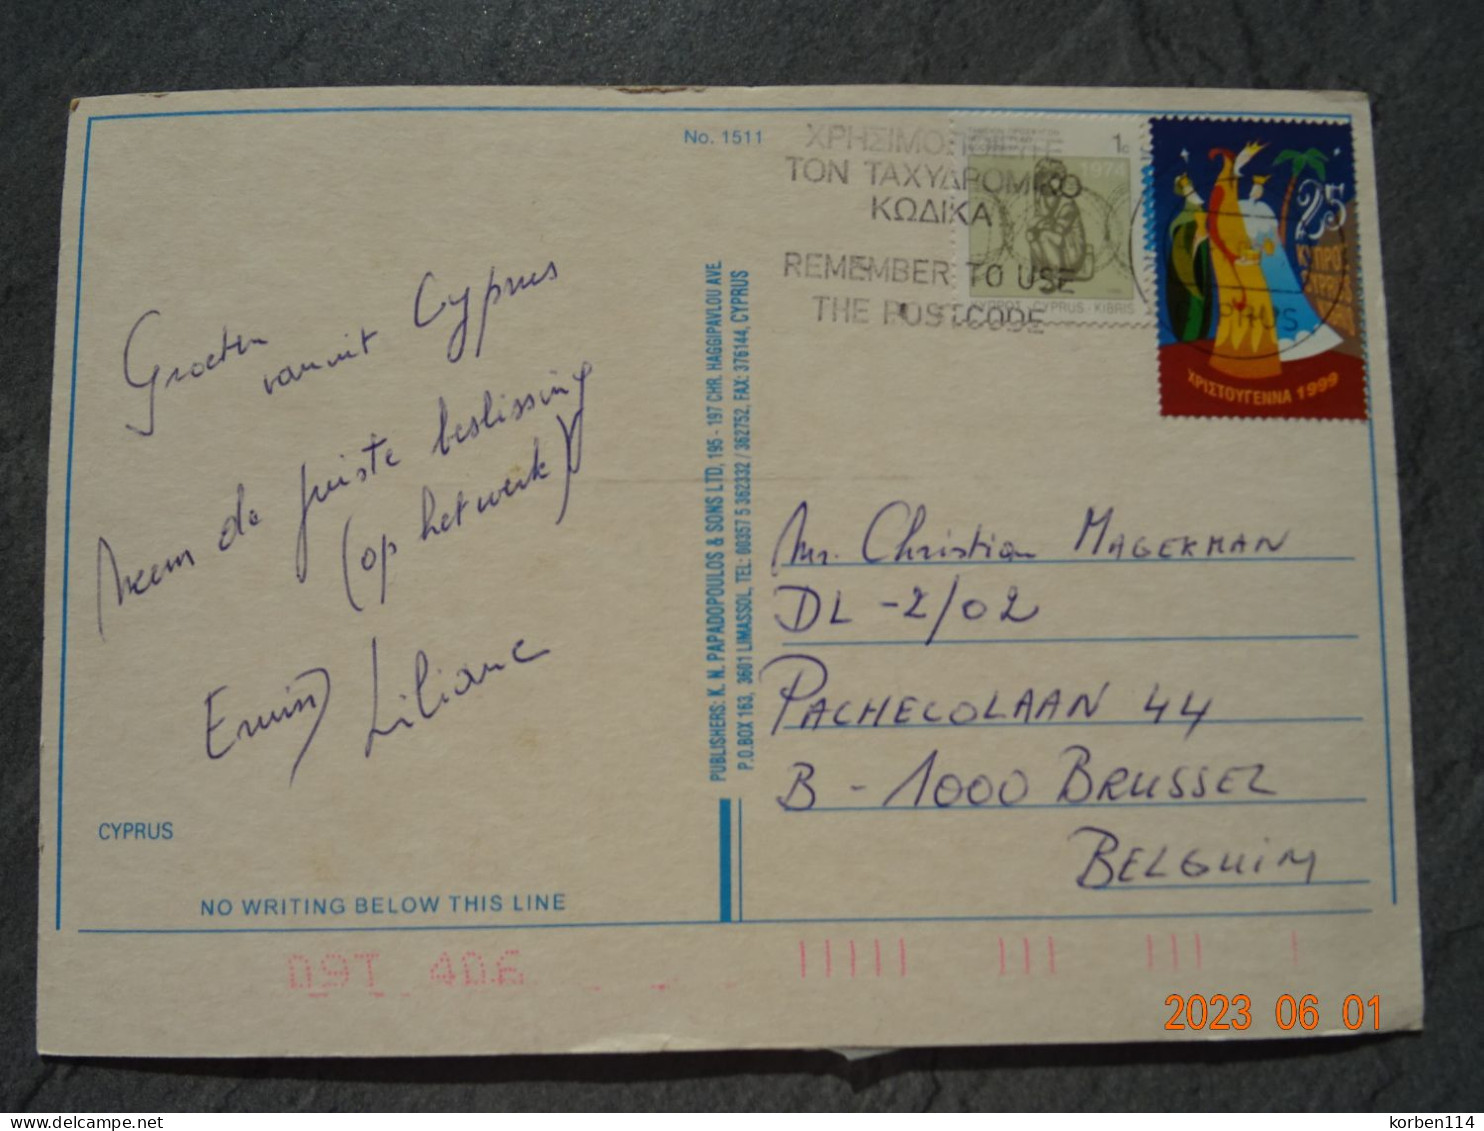 No. 1511
ΧΡΗΣΙΜΟΠΟΙΕΙΤΕ
ΤΟΝ ΤΑΧΥΔΡΟΜΙΚΟ
ΚΩΔΙΚΑ
REMEMBER TO USE
THE POSTCODE
1c
1974
ΚΥΠΡΟΣ · CYPRUS · KIBRIS
25
ΚΥΠΡΟΣ
CYPRUS
KIBRIS
ΧΡΙΣΤΟΥΓΕΝΝΑ 1999
Groeten
vanuit Cyprus
Neem de juiste beslissing
(op het werk)
Erwin Liliane
CYPRUS
NO WRITING BELOW THIS LINE
PUBLISHERS: K. N. PAPADOPOULOS & SONS LTD, 195 - 197 CHR. HAGGIPAVLOU AVE.
P.O.BOX 163, 3601 LIMASSOL, TEL: 00357 5 362332 / 362752, FAX: 376144, CYPRUS
Mr. Christian MAGERMAN
DL -2/02
PACHECOLAAN 44
B - 1000 BRUSSEL
BELGUIM
D9T 406
2023 06 01
delcampe.net
korben114